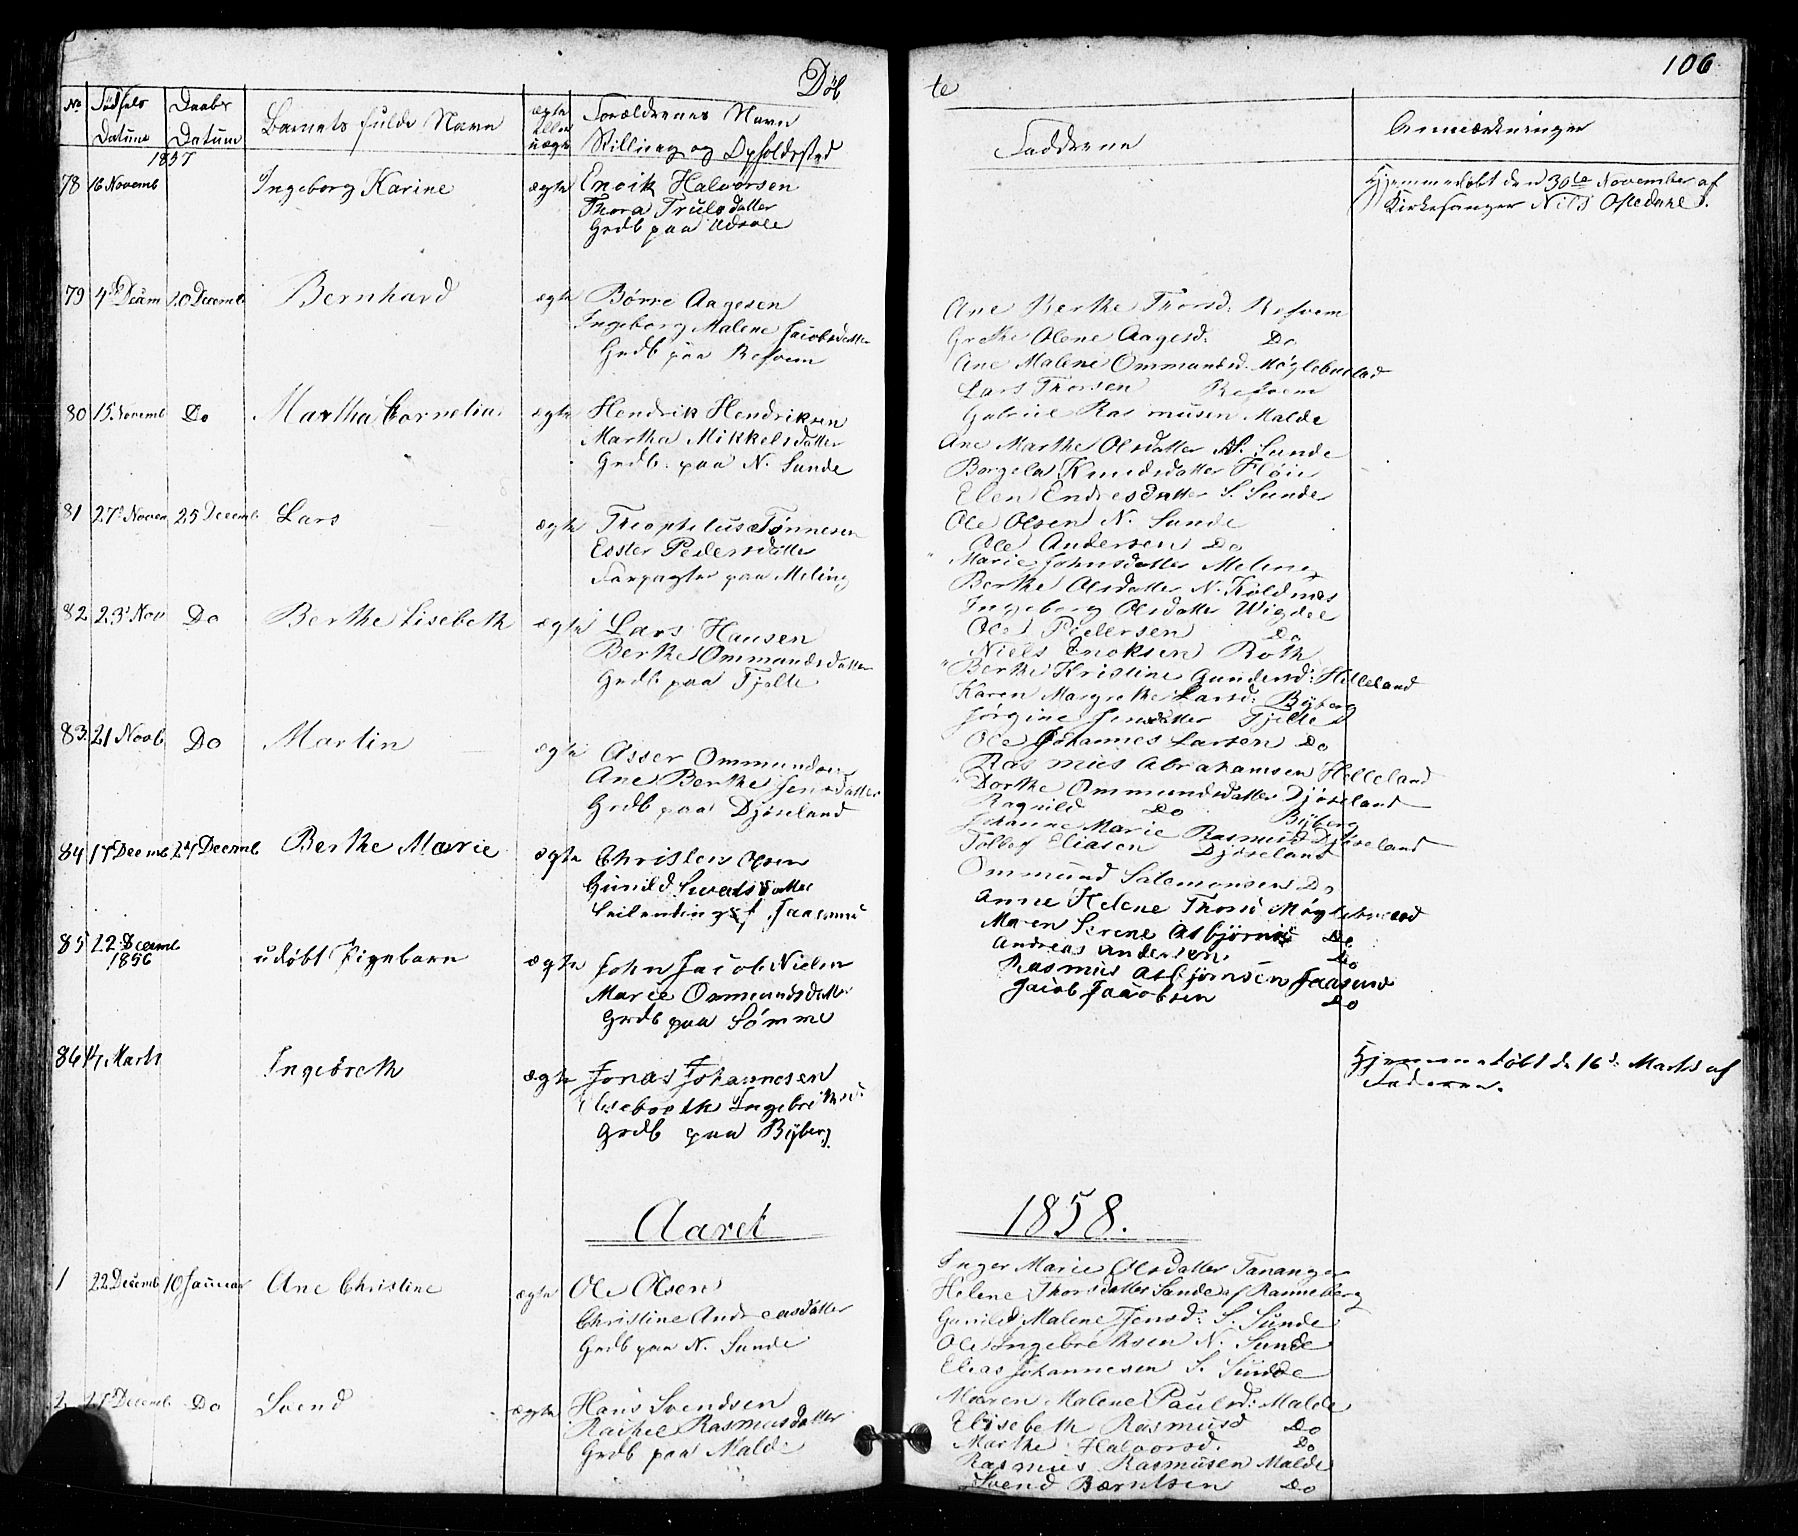 Döb
te
106
No
Fødsels
Datum
Daabs
Datum
Barnets fulde Navn
ægte
eller
uægte
Forældrenes Navn
Stilling og Opholdssted
Faddrene
Anmærkninger
1857
78 16 Novemb Ingeborg Karine ægte Enoik Halvorsen
Thora Trulsdatter
Grdb paa
Hjemmedøbt den 30te November af
Kirkesanger Nils Oftedahl.
79 4de Decem 20 Decemb Bernhard ægte Børre Aagesen
Ingeborg Malene Jacobsdatter
Grdb paa Refvem
Ane Berthe Thorsd: Refvem
Grethe Olene Aagesd. Do
Ane Malene Ommundsd. Møglebustad
Lars Thorsen Refvem
Gabriel Rasmusen Malde
80 15 Novemb Do Martha Cornelia ægte Hendrik Hendriksen
Martha Mikkelsdatter
Grdb. paa N. Sunde
Ane Marthe Olsdatter N. Sunde
Borgela Knudsdatter Fløiu
Elen Endresdatter S. Sunde
Ole Olsen N. Sunde
Ole Andersen Do
81 27 Novem 25 Decemb Lars ægte Theophilus Tønnesen
Ester Pedersdatter
Forpagter paa Meling
Marie Johnsdatter Meling
Berthe Olsdatter N. Koldnæs
Ingeborg Olsdatter Wigdel
Ole Pedersen Do
Niels Enoksen Roth
82 23 Nov Do Berthe Lisebeth ægte Lars Hansen
Berthe Ommundsdatter
Grdb paa Tjelte
Berthe Kristine Gundersd: Helleland
Karen Margrethe Larsd: Byberg
Jørgine Jensdatter Tjelte
Ole Johannes Larsen Do
Rasmus Abrahamsen Helleland
83 21 Novb Do Martin ægte Asser Ommundsen
Ane Berthe Jensdatter
Grdb paa Djøseland
Dorthe Ommundsdatter Djøseland
Ragnild Do Byberg
Johanne Marie Rasmusd Djøseland
Tollef Eliasen Djøseland
Ommund Salemonsen Do
84 17 Decemb 27 Decemb Berthe Marie ægte Christen Olsen
Gunild Sivertsdatter
af Jaasund
Anne Helene Thorsd Møglebustad
Maren Serene Asbjørnsd Do
Andreas Andersen Do
Rasmus Asbjørnsen Jaasund
Jacob Jacobsen Do
85 22 Decemb
1856
udøbt Pigebarn ægte John Jacob Nielsen
Marie Ommundsdatter
Grdb paa Sømme
86 14 Marts Ingebreth ægte Jonas Johannesen
Elisebeth Ingebrethsd:
Grdb paa Byberg
Hjemmedøbt d. 16d. Marts af
Faderen.
Aaret 1858.
1 22 Decemb 10 Januar Ane Christine ægte Ole Olsen
Christine Andreasdatter
Grdb paa N. Sunde
Inger Marie Olsdatter Tananger
Helene Thorsdatter Sunde af Ranneberg
Gunild Malene Jensd: S. Sunde
Ole Ingebrethsen N. Sunde
Elias Johannesen S. Sunde
2 27 Decemb Do Svend ægte Hans Svendsen
Rachel Rasmusdatter
Grdb paa Malde
Maren Malene Paulsd: Malde
Elisebeth Rasmusd Do
Marthe Halvorsd. Do
Rasmus Rasmusen Malde
Svend Bærntsen Do